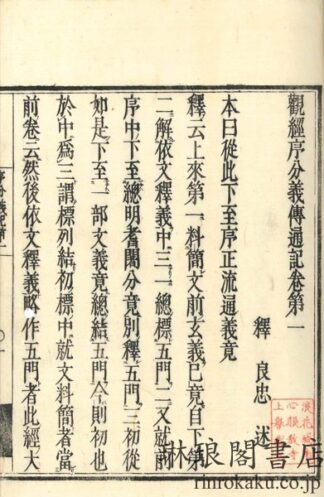 觀經序分義傳通記卷第一
釋良忠述
本曰從此下至序正流通義竟
釋云上來第一料簡文前玄義已竟自下第
二解依文釋義中三一總標五門二又就前
序中下至總明耆闍分竟別釋五門三初從
如是下至一部文義竟總結五門今則初也
於中爲三謂標列結初標中就文料簡者當
前卷云然後依文釋義略作五門者此經大
林琅閣書店
rinrokaku.co.jp